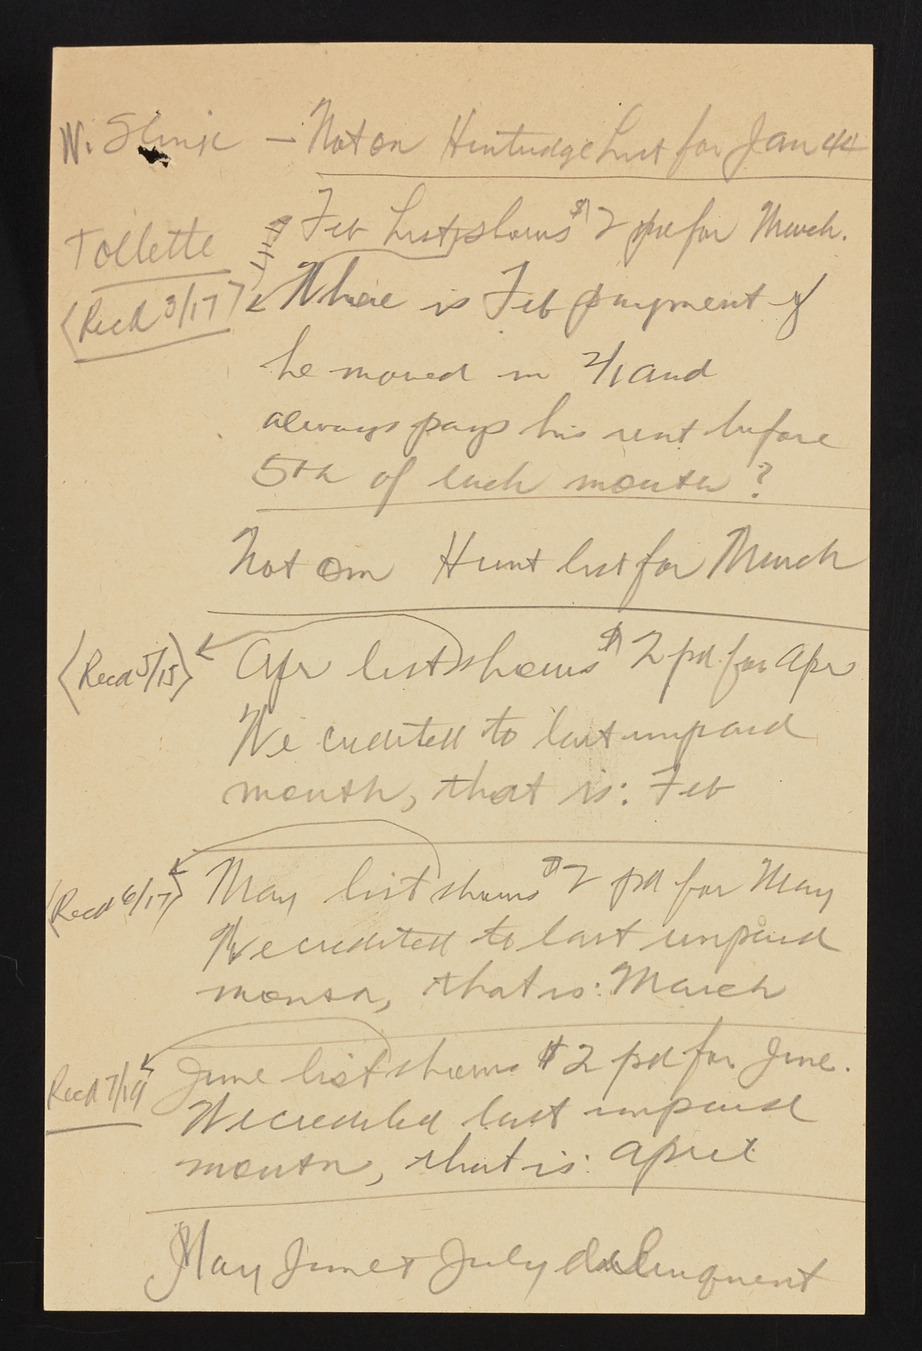 W. Slinje – Not on Huntridge List for Jan 44
Feb List shows $2 pd for March.
Tollette
(Rec'd 3/17)
Where is Feb payment if
he moved in 2/1 and
always pays his rent before
5th of each month?
Not on Hunt list for March
(Recd 5/15) Apr list shows $2 pd for Apr
We credited to last unpaid
month, that is: Feb
(Recd 6/17) May list shows $2 pd for May
We credited to last unpaid
month, that is: March
Recd 7/19 June list shows $2 pd for June.
We credited last unpaid
month, that is: April
May June + July delinquent